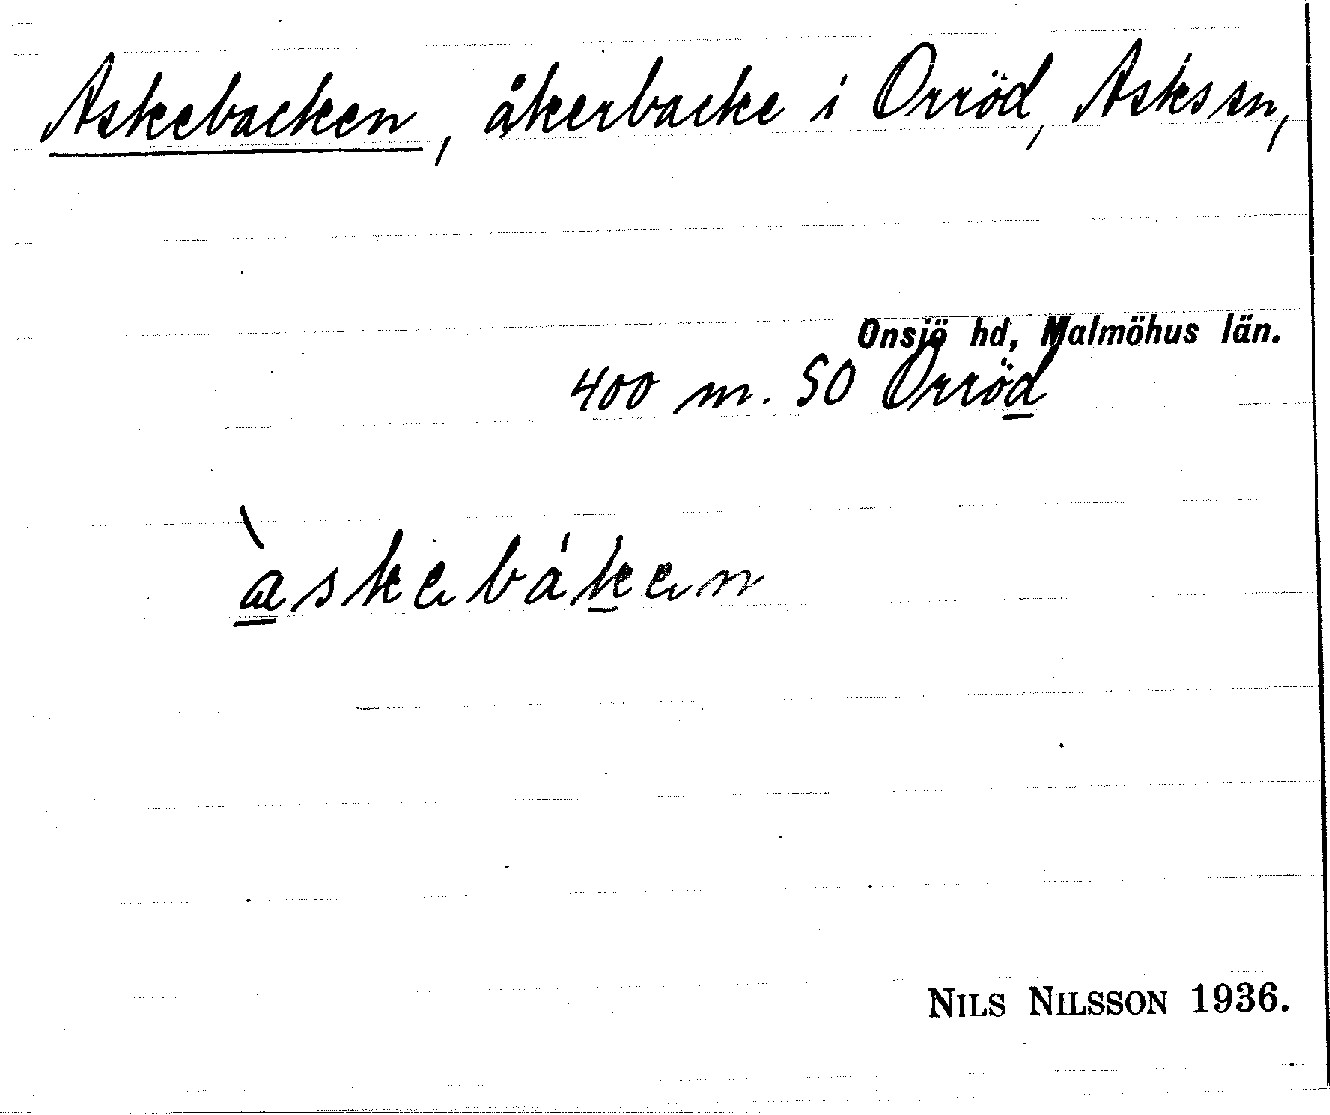 Askebacken, åkerbacke i Orröd, Asks sn,
Onsjö hd, Malmöhus län.
400 m. SO Orröd
àskebákен
NILS NILSSON 1936.